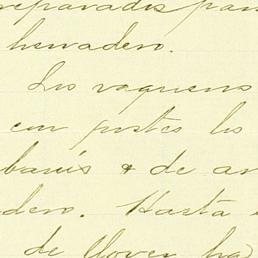 reparadas par
herradero.
Los vaqueros
con postes los
de
dero. Hasta
de llover ha